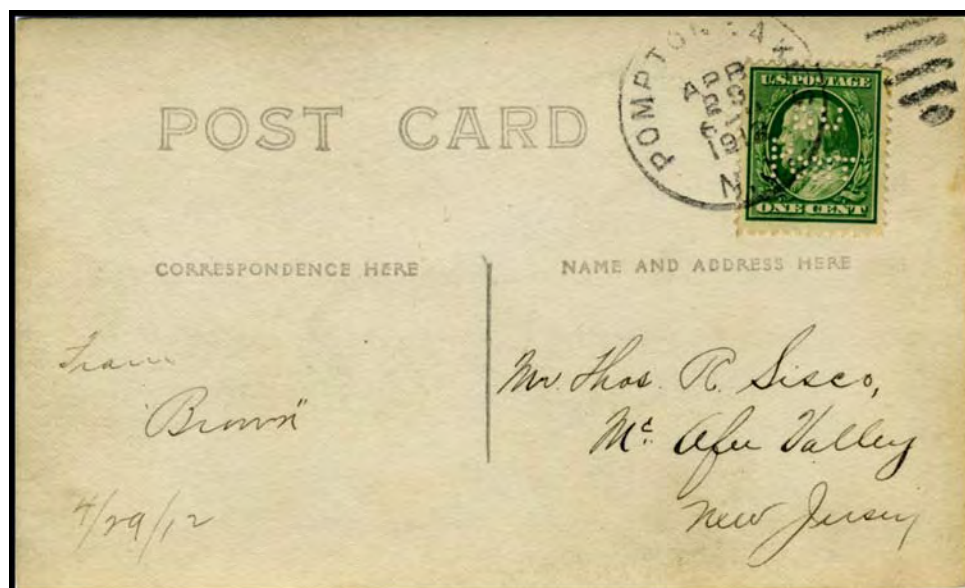 POST CARD
POMPTON LAKES
APR
N.J.
U.S. POSTAGE
ONE CENT
CORRESPONDENCE HERE
NAME AND ADDRESS HERE
From
"Brown"
4/29/12
Mr. Thos. R. Sisco,
Mc Afee Valley
New Jersey